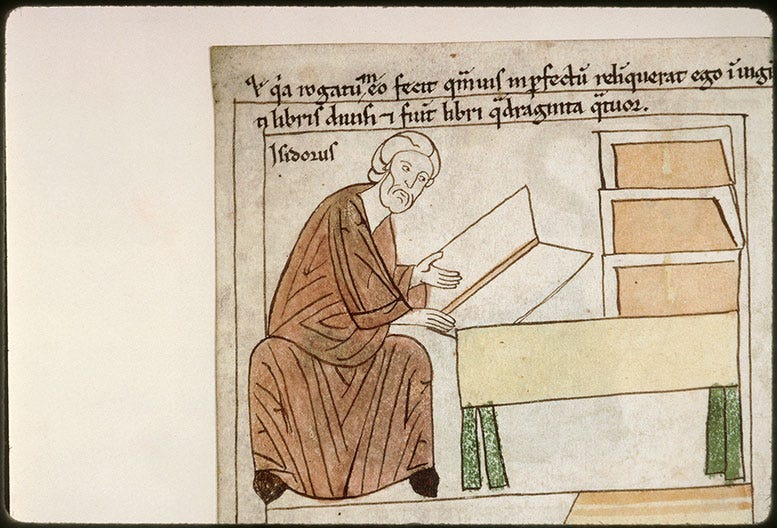 q̄ q̇a rogatū eo fecit q̄muis inp̄fectū reliquerat ego ī uigī
ti libris diuisi ⁊ fiūt libri q̄draginta q̄tuor.
Isidorus